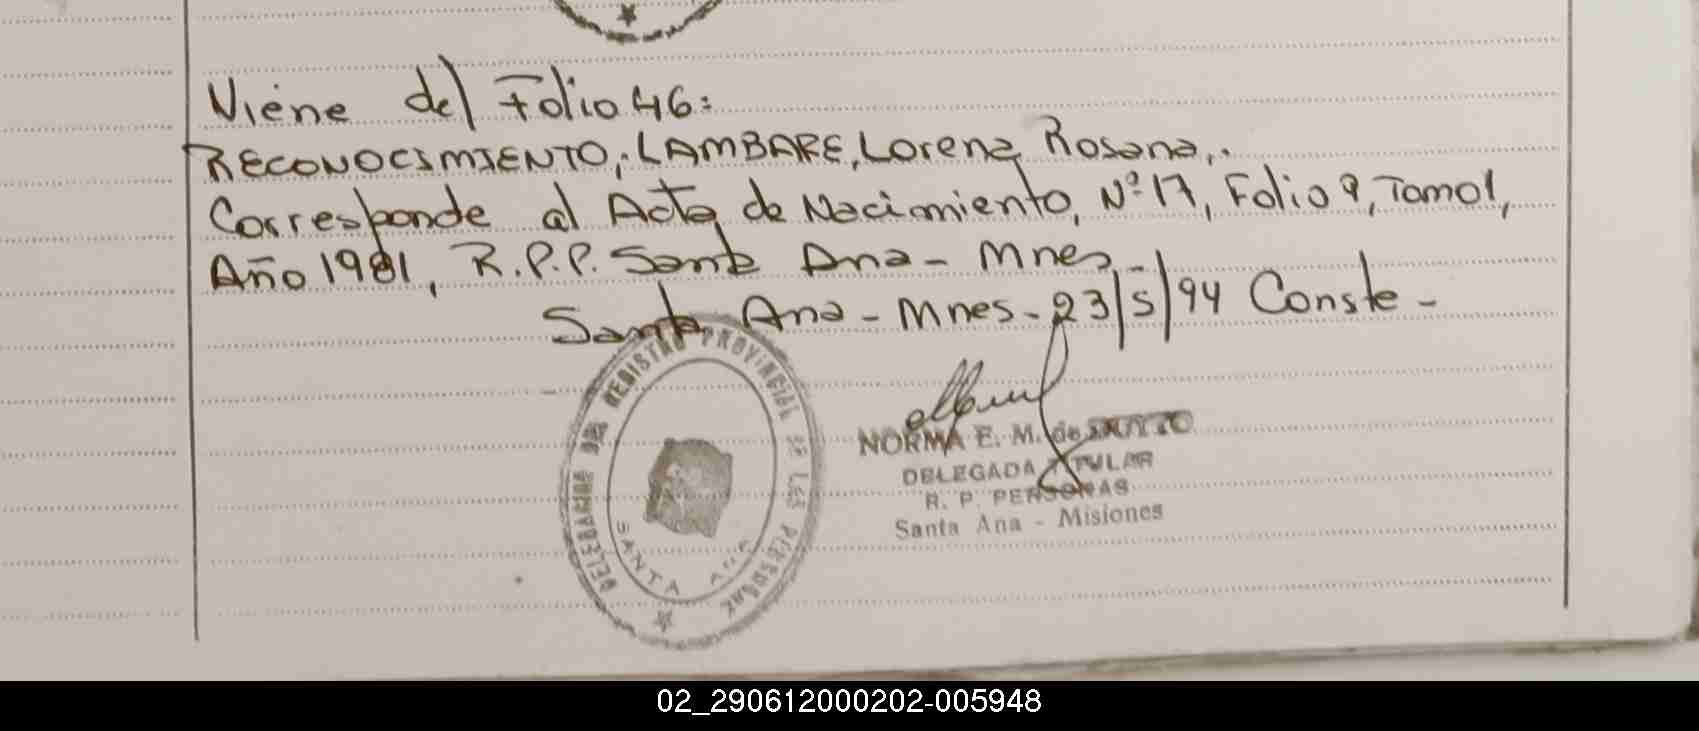 Viene del Folio 46:
RECONOCIMIENTO, LAMBARE, Lorena Rosana,.
Corresponde al Acta de Nacimiento, Nº 17, Folio 9, Tomo 1,
Año 1981, R.P.P. Santa Ana - Mnes -
Santa Ana - Mnes - 23/5/94 Conste -
DELEGACION DEL REGISTRO PROVINCIAL DE LAS PERSONAS
SANTA ANA
NORMA E. M. de
DELEGADA TITULAR
R. P. PERSONAS
Santa Ana - Misiones
02_290612000202-005948